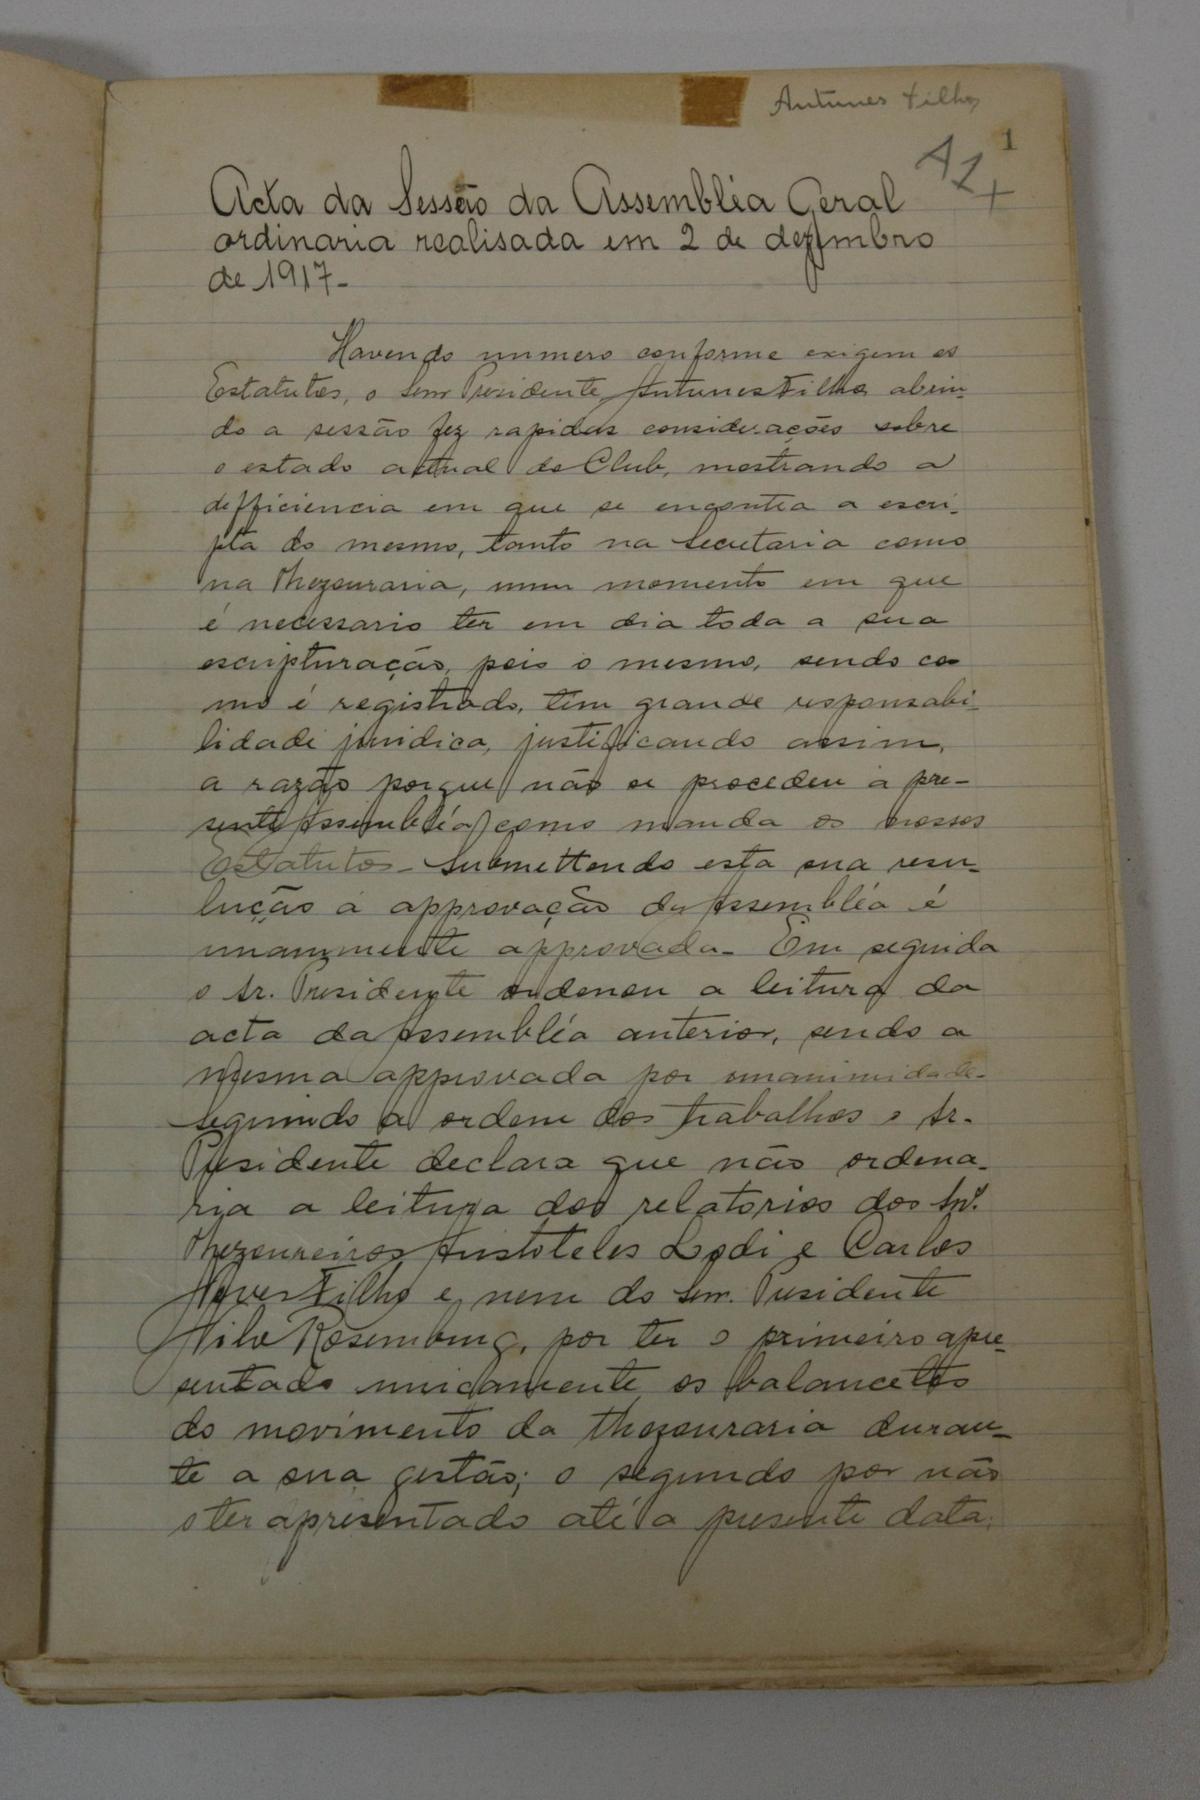 Antunes Filho
1
A1+
Acta da Sessão da Assembléa Geral
ordinaria realisada em 2 de dezembro
de 1917-
Havendo numero conforme exigem os
Estatutos, o Snr Presidente, Antunes Filho abrin-
do a sessão fez rapidas considerações sobre
o estado actual do Club, mostrando a
defficiencia em que se encontra a escri-
pta do mesmo, tanto na Secretaria como
na Thezouraria, num momento em que
é necessario ter em dia toda a sua
escripturação, pois o mesmo, sendo co-
mo é registrado, tem grande responsabi-
lidade juridica, justificando assim,
a razão porque não se procedeu a pre-
sente Assembléa como manda os nossos
Estatutos- Submettendo esta sua reso-
lução a approvação da Assembléa é
unanimente approvada- Em seguida
o Sr. Presidente ordenou a leitura da
acta da Assembléa anterior, sendo a
mesma approvada por unanimidade-
Seguindo a ordem dos trabalhos o Sr.
Presidente declara que não ordena-
ria a leitura dos relatorios dos Snrs.
Thezoureiros Aristoteles Lodi e Carlos
Filho e nem do Snr. Presidente
Nilo Rosemburg, por ter o primeiro apre-
sentado unicamente os balancetes
do movimento da thezouraria duran-
te a sua gestão; o segundo por não
o ter apresentado até a presente data,